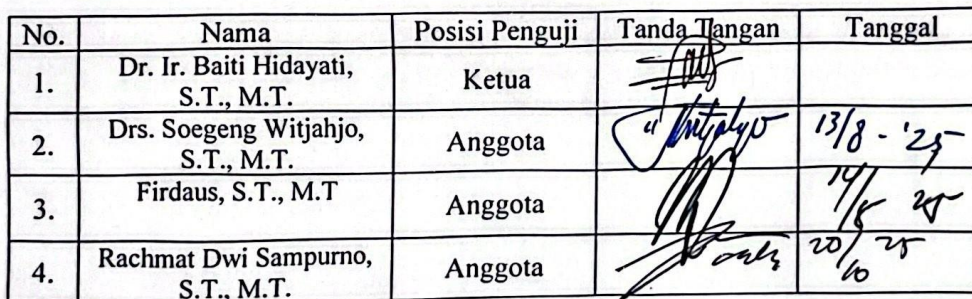 No. Nama Posisi Penguji Tanda Tangan Tanggal
1. Dr. Ir. Baiti Hidayati, S.T., M.T. Ketua
2. Drs. Soegeng Witjahjo, S.T., M.T. Anggota 13/8 - '25
3. Firdaus, S.T., M.T Anggota
4. Rachmat Dwi Sampurno, S.T., M.T. Anggota 20/10 25